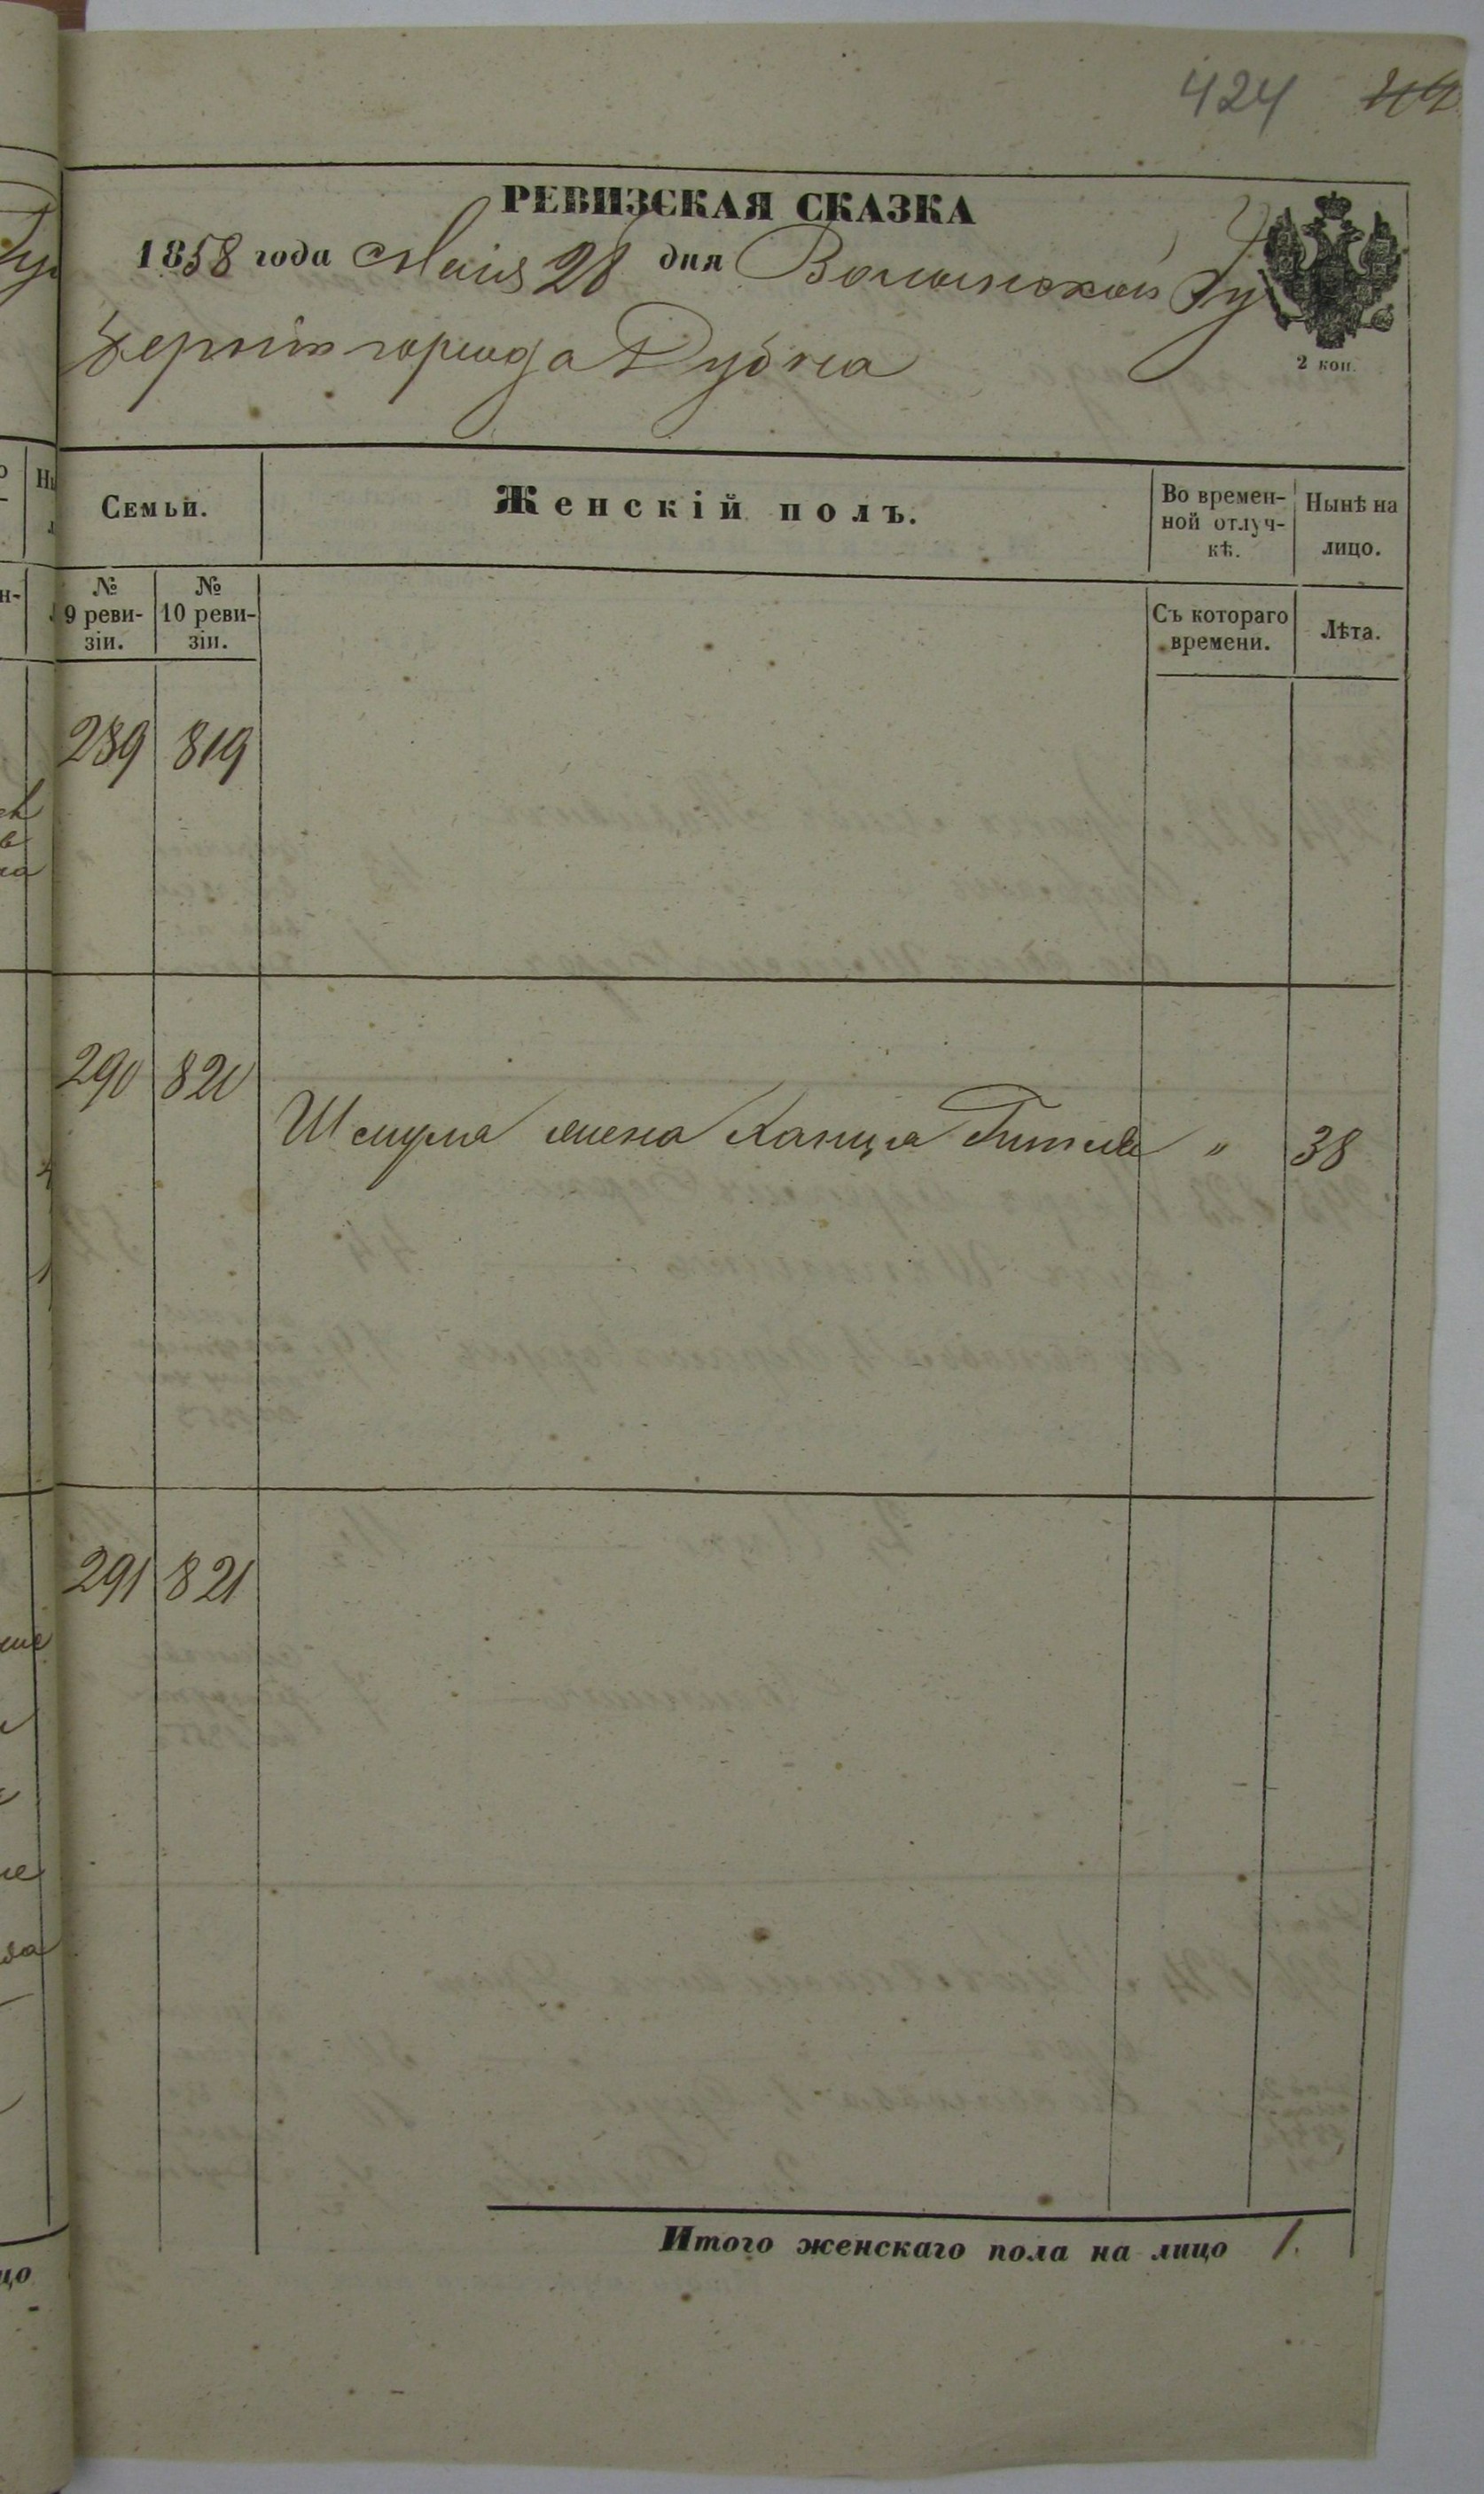 424
РЕВИЗСКАЯ СКАЗКА
1858 года Маія 28 дня Волынской Гу
берніи города Дубна
2 коп.
Семьи.
Женскій полъ.
Во времен-
ной отлуч-
кѣ.
Нынѣ на
лицо.
№
9 реви-
зіи.
№
10 реви-
зіи.
Съ котораго
времени.
Лѣта.
289 819
290 820
Шмула жена Ханца Гитля " 38
291 821
Итого женскаго пола на лицо 1.